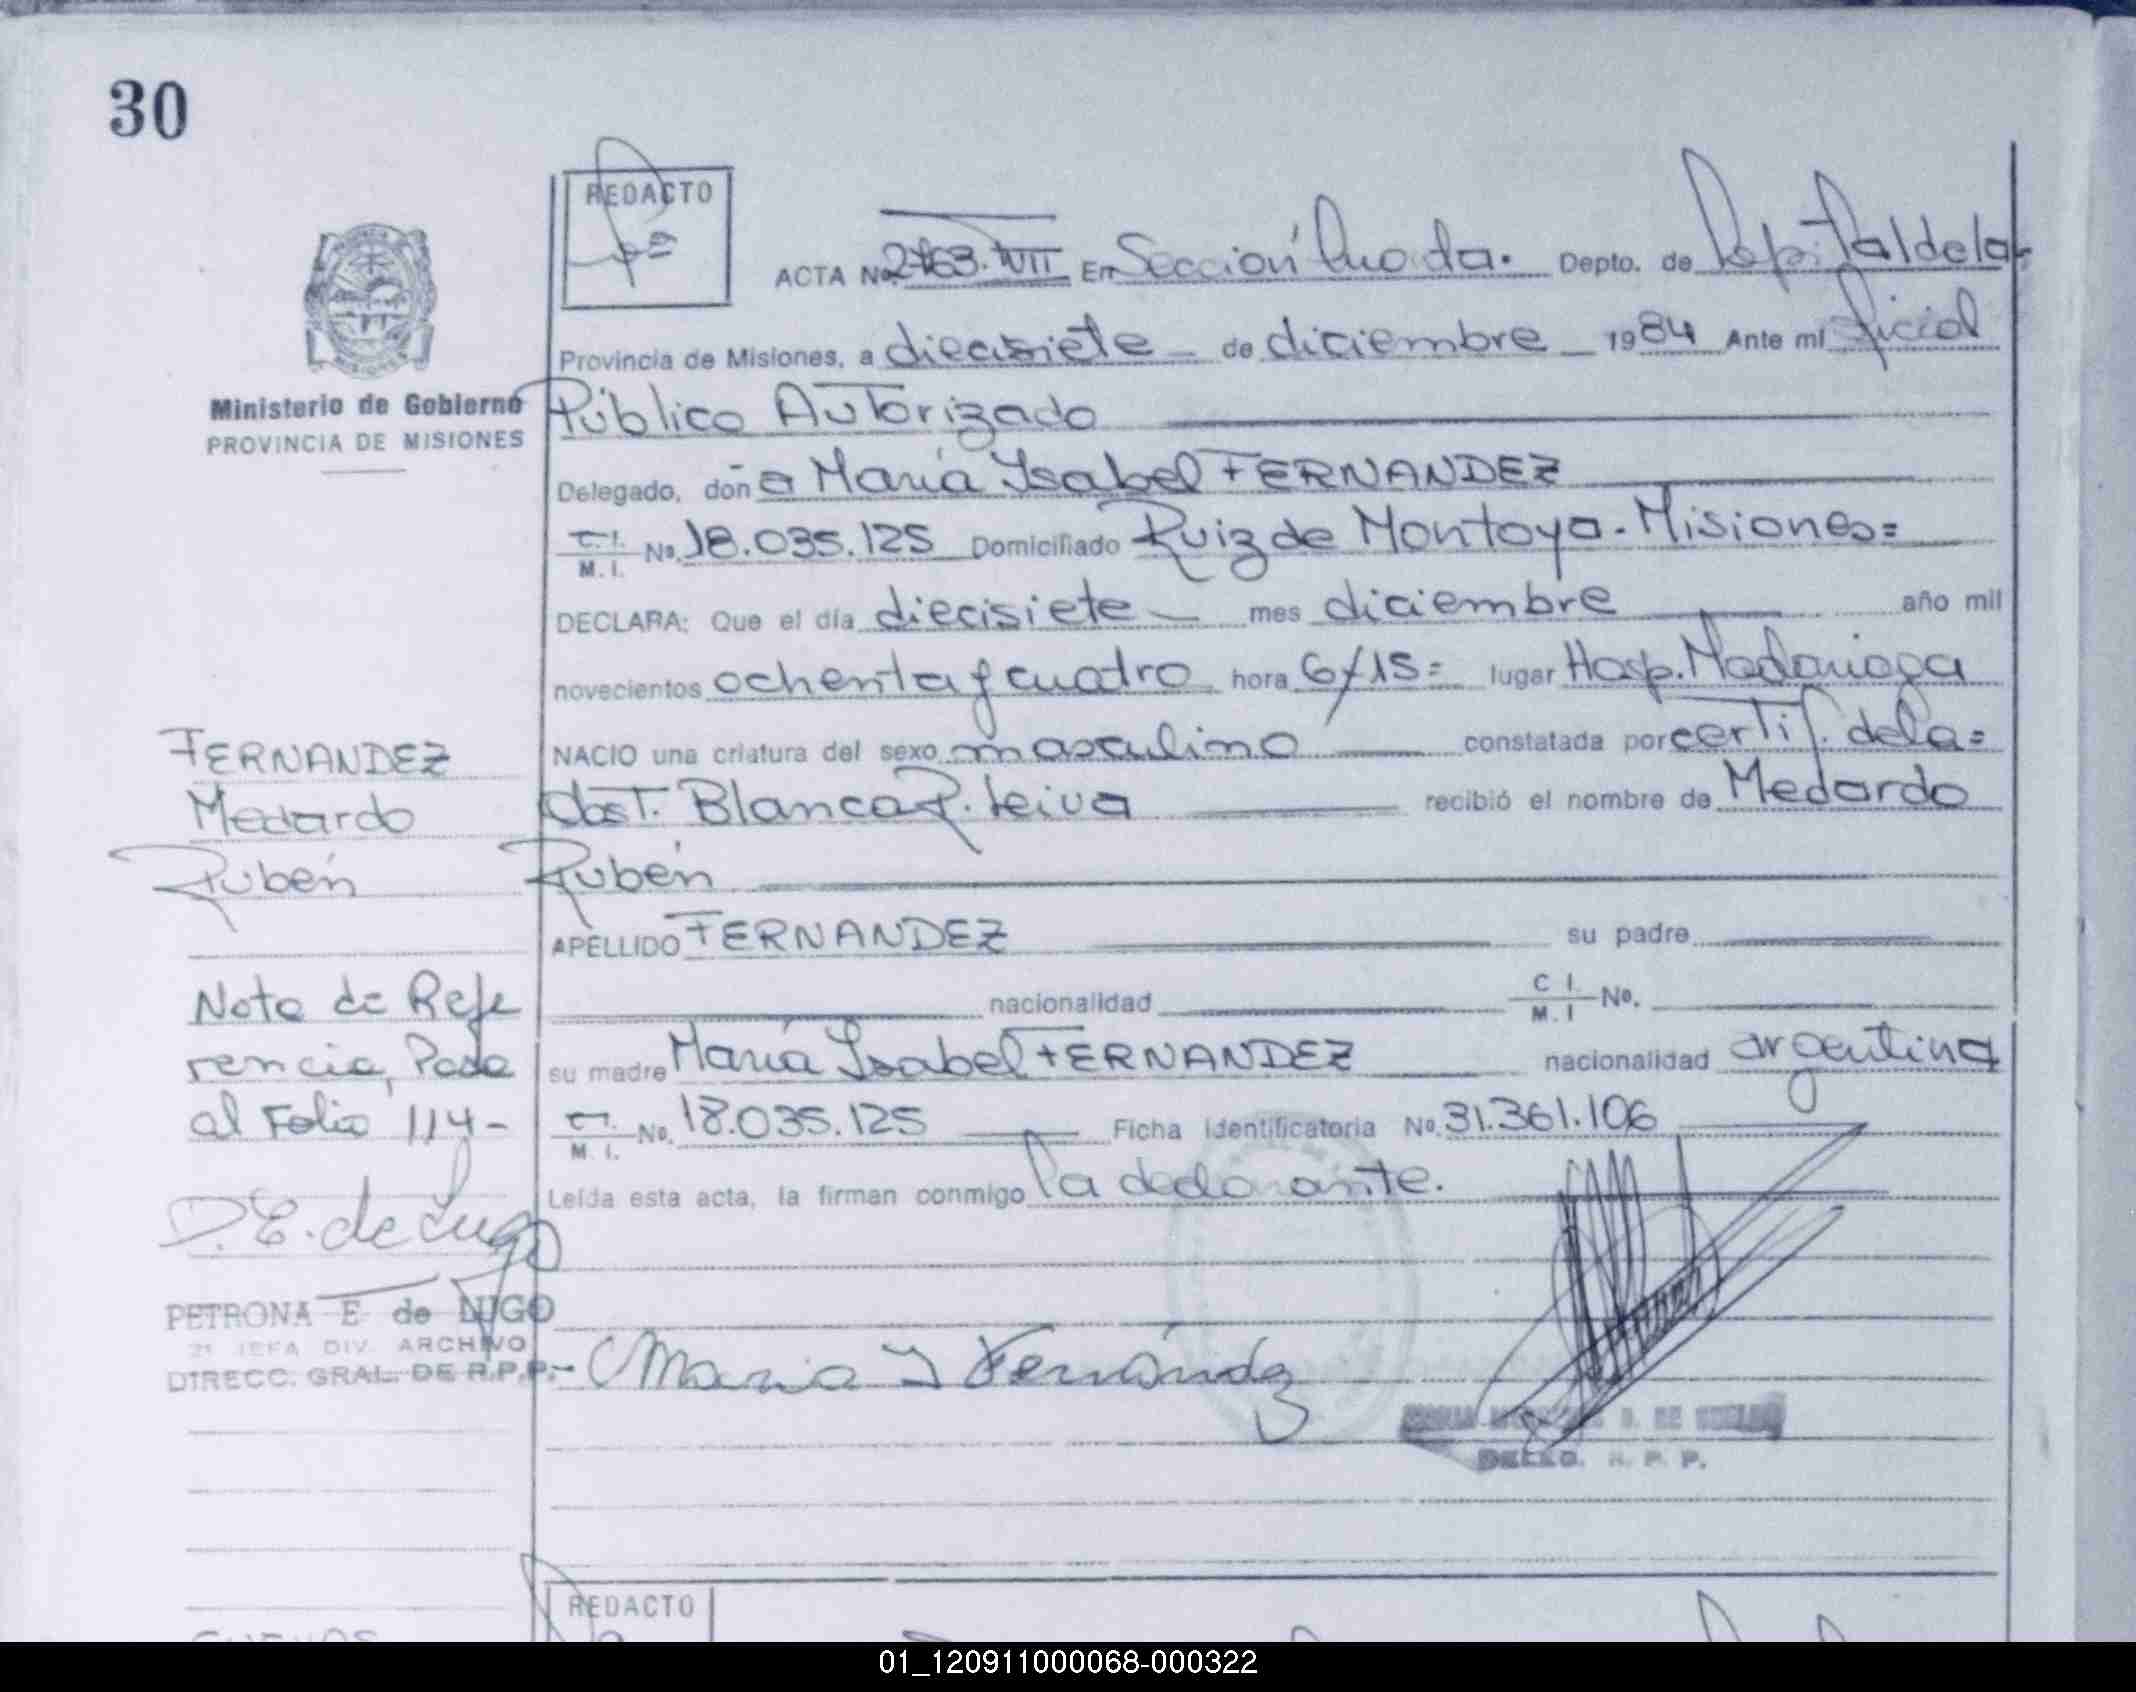 30
REDACTO
ACTA No. 2763. VII En Sección Depto. de
Provincia de Misiones, a diecisiete de diciembre 1984 Ante mi Oficial
Ministerio de Gobierno
PROVINCIA DE MISIONES
Público Autorizado
Delegado, doña María Ysabel FERNANDEZ
C.I. M.I. No. 18.035.125 Domiciliado Ruiz de Montoya. Misiones=
DECLARA: Que el día diecisiete mes diciembre año mil
novecientos ochenta y cuatro hora 6/15= lugar Hosp. Madariaga
NACIO una criatura del sexo masculino constatada por certif. de la=
Obst. Blanca R. Leiva recibió el nombre de Medardo
Rubén
APELLIDO FERNANDEZ su padre
nacionalidad C I. M.I No.
su madre María Ysabel FERNANDEZ nacionalidad argentina
C.I. M. I. No. 18.035.125 Ficha Identificatoria No. 31.361.106
Leída esta acta, la firman conmigo la declarante.
Maria Y Fernández
DELEG. R. P. P.
FERNANDEZ
Medardo
Rubén
Nota de Refe
rencia, Pasa
al Folio 114-
P. E. de Lugo
PETRONA E de LUGO
JEFA DIV. ARCHIVO
DIRECC. GRAL. DE R.P.P.-
REDACTO
01_120911000068-000322